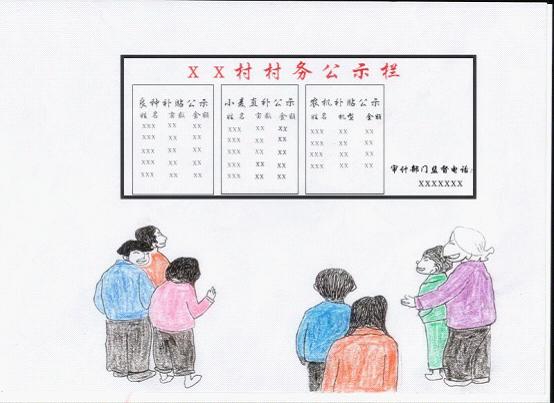 XX村村务公示栏
良种补贴公示
姓名 亩数 金额
XXX XX XX
XXX XX XX
XXX XX XX
XXX XX XX
XXX XX XX
小麦直补公示
姓名 亩数 金额
XXX XX XX
XXX XX XX
XXX XX XX
XXX XX XX
XXX XX XX
农机补贴公示
姓名 机型 金额
XXX XX XX
XXX XX XX
XXX XX XX
XXX XX XX
审计部门监督电话:
XXXXXXX